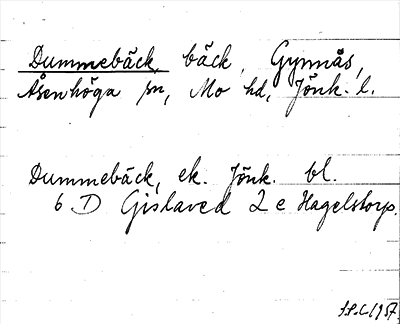 Dummebäck, bäck, Gynnås,
Åsenhöga sn, Mo hd, Jönk. l.
Dummebäck, ek. Jönk. bl.
6 D Gislaved 2 e Hagelstorp.
1957